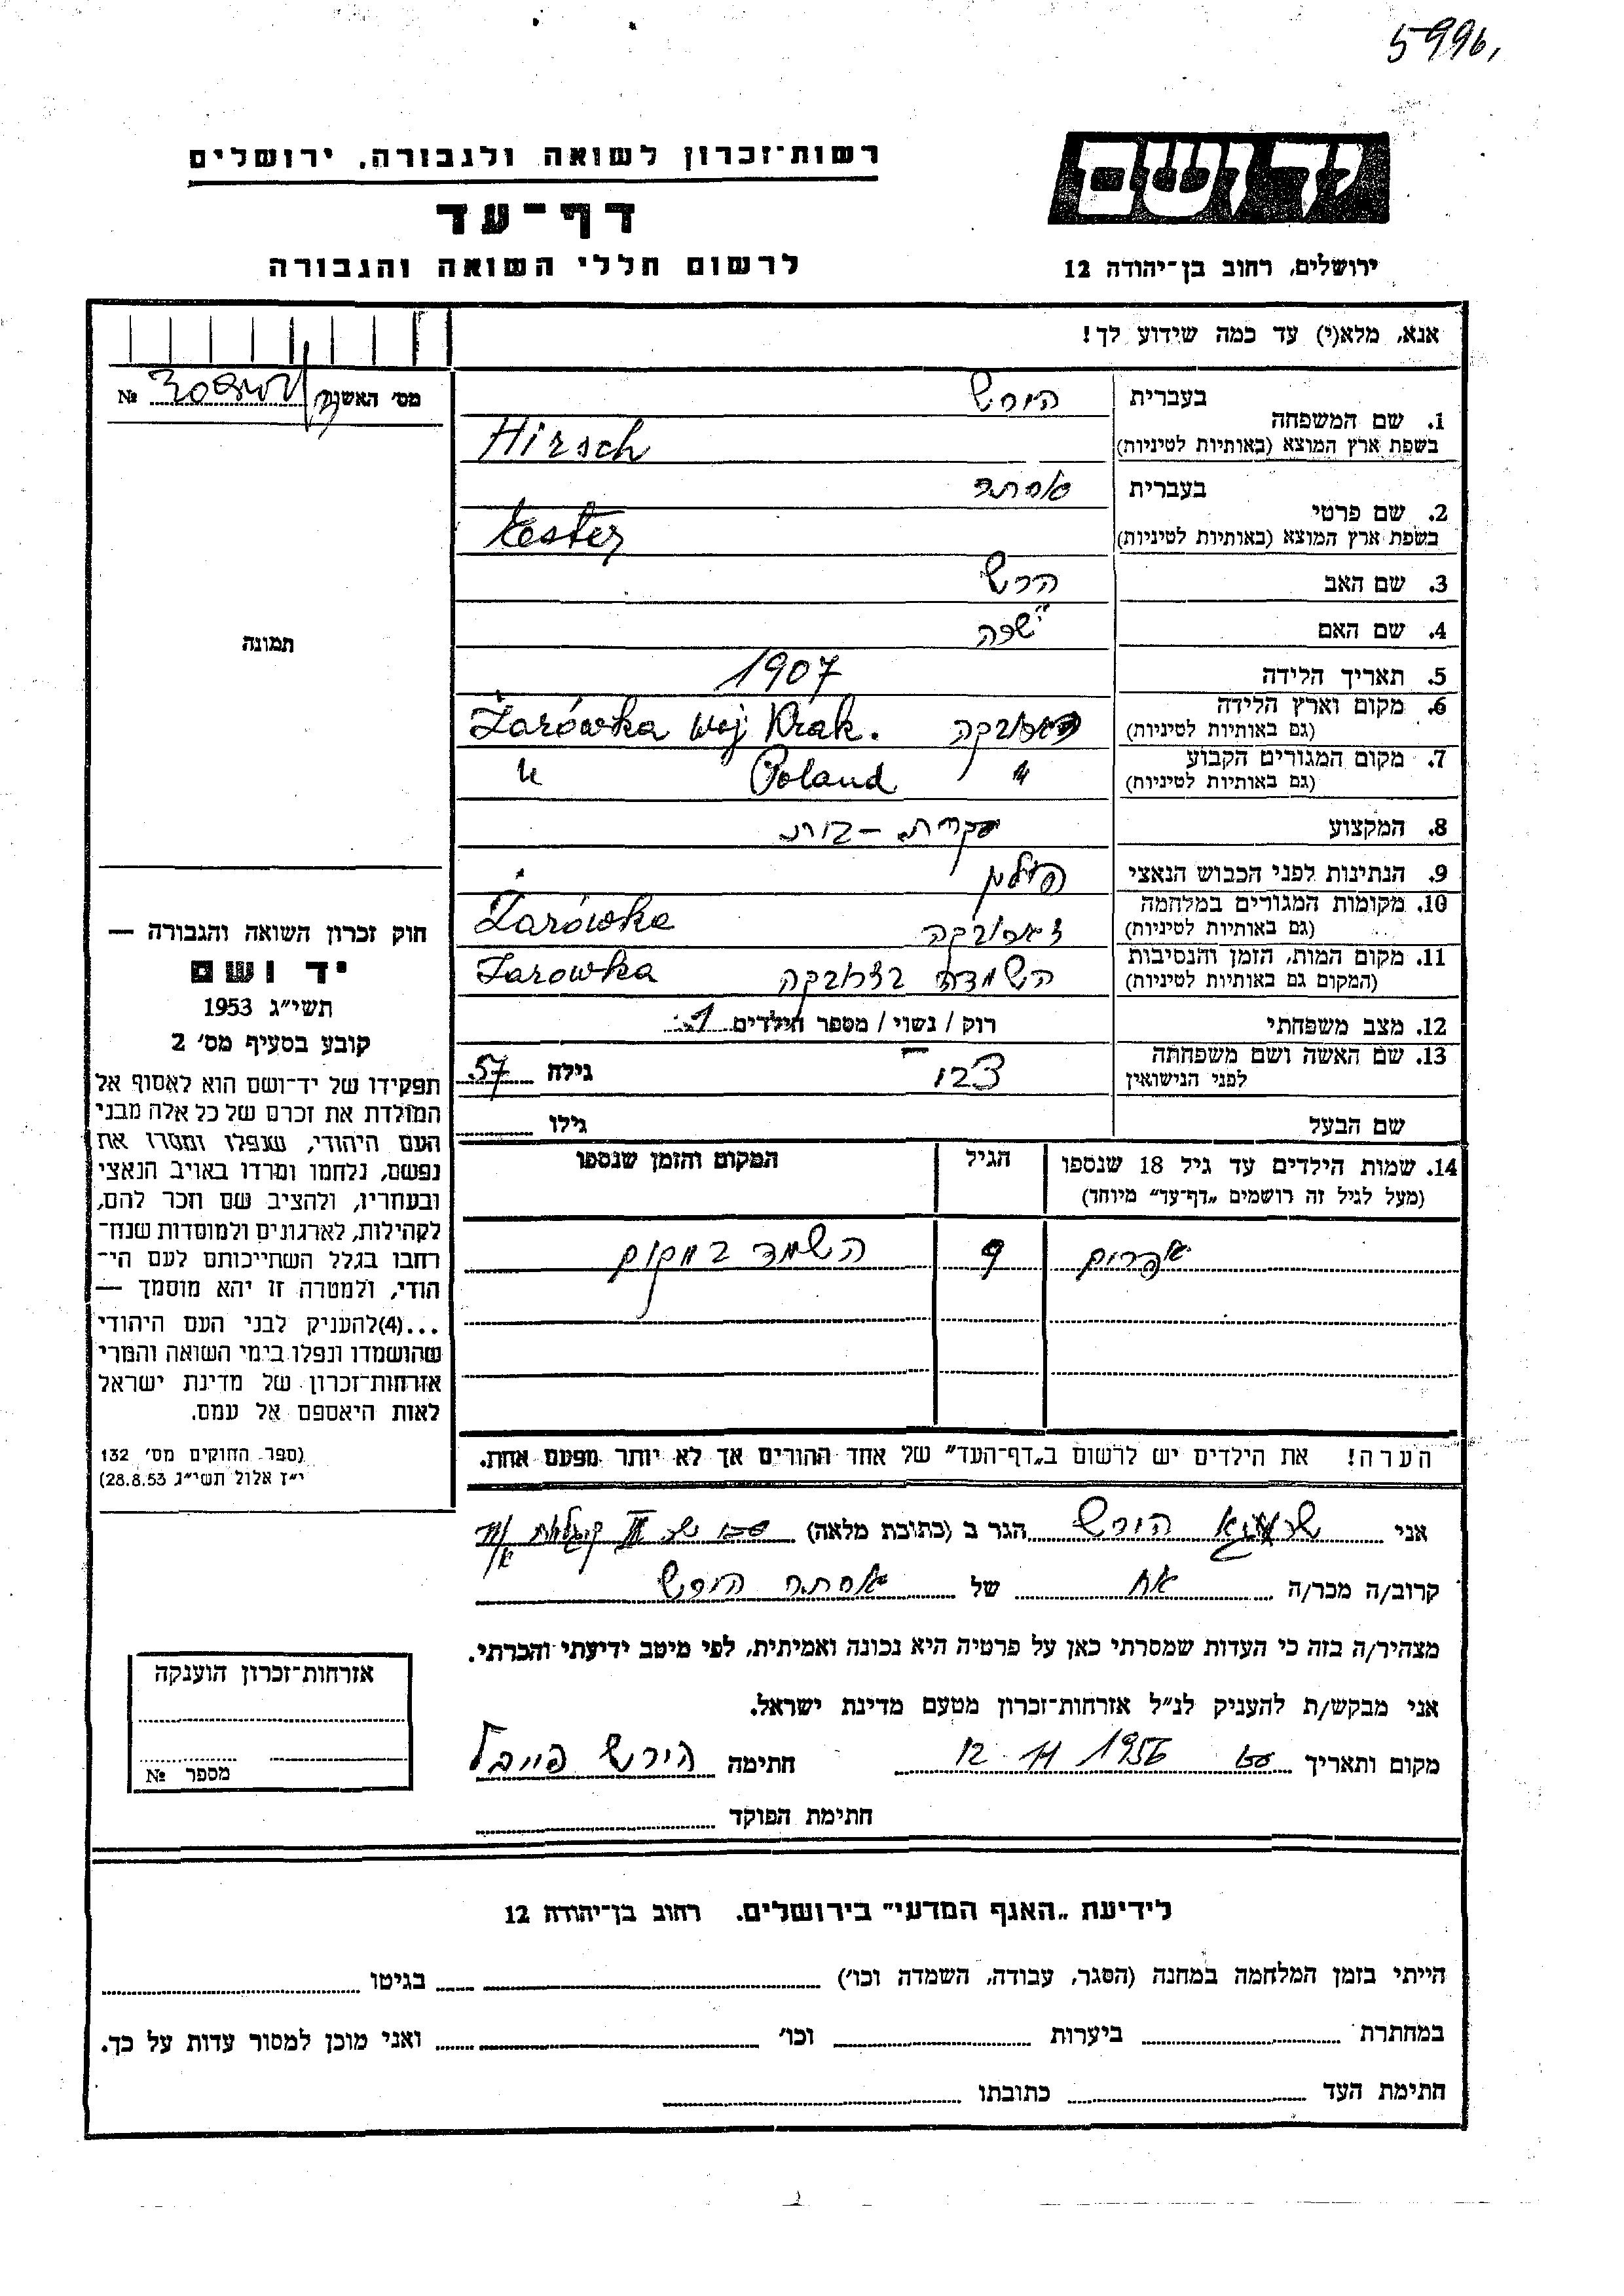 5996,
רשות־זכרון לשואה ולגבורה, ירושלים
יד ושם
דף־עד
לרשום חללי השואה והגבורה
ירושלים, רחוב בן־יהודה 12
אנא, מלא(י) עד כמה שידוע לך!
מס' האשנב №
תמונה
1. שם המשפחה
בעברית הירש
בשפת ארץ המוצא (באותיות לטיניות) Hirsch
2. שם פרטי
בעברית אסתר
בשפת ארץ המוצא (באותיות לטיניות) Ester
3. שם האב הרש
4. שם האם
5. תאריך הלידה 1907
6. מקום וארץ הלידה Żarówka woj Krak.
(גם באותיות לטיניות)
7. מקום המגורים הקבוע " Poland "
(גם באותיות לטיניות)
8. המקצוע עקרת-בית
9. הנתינות לפני הכבוש הנאצי פולין
10. מקומות המגורים במלחמה Żarówka
(גם באותיות לטיניות)
11. מקום המות, הזמן והנסיבות השמדה Zarowka
(המקום גם באותיות לטיניות)
12. מצב משפחתי רוק / נשוי / מספר הילדים 1
13. שם האשה ושם משפחתה
לפני הנישואין גילה 57
שם הבעל גילו
14. שמות הילדים עד גיל 18 שנספו הגיל המקום והזמן שנספו
(מעל לגיל זה רושמים „דף־עד" מיוחד)
אפרים 9 השמד במקום
הערה! את הילדים יש לרשום ב„דף־העד" של אחד ההורים אך לא יותר מפעם אחת.
חוק זכרון השואה והגבורה —
יד ושם
תשי״ג 1953
קובע בסעיף מס' 2
תפקידו של יד־ושם הוא לאסוף אל
המולדת את זכרם של כל אלה מבני
העם היהודי, שנפלו ומסרו את
נפשם, נלחמו ומרדו באויב הנאצי
ובעוזריו, ולהציב שם וזכר להם,
לקהילות, לארגונים ולמוסדות שנח־
רבו בגלל השתייכותם לעם הי־
הודי, ולמטרה זו יהא מוסמך —
...(4)להעניק לבני העם היהודי
שהושמדו ונפלו בימי השואה והמרי
אזרחות־זכרון של מדינת ישראל
לאות היאספם אל עמם.
(ספר החוקים מס' 132
י״ז אלול תשי״ג 28.8.53)
אני הירש הגר ב (כתובת מלאה)
קרוב/ה מכר/ה אח של אסתר הירש
מצהיר/ה בזה כי העדות שמסרתי כאן על פרטיה היא נכונה ואמיתית, לפי מיטב ידיעתי והכרתי.
אני מבקש/ת להעניק לנ״ל אזרחות־זכרון מטעם מדינת ישראל.
מקום ותאריך 12 11 1956 חתימה הירש פייבל
חתימת הפוקד
אזרחות־זכרון הוענקה
מספר №
לידיעת „האגף המדעי" בירושלים. רחוב בן־יהודה 12
הייתי בזמן המלחמה במחנה (הסגר, עבודה, השמדה וכו') בגיטו
במחתרת ביערות וכו' ואני מוכן למסור עדות על כך.
חתימת העד כתובתו